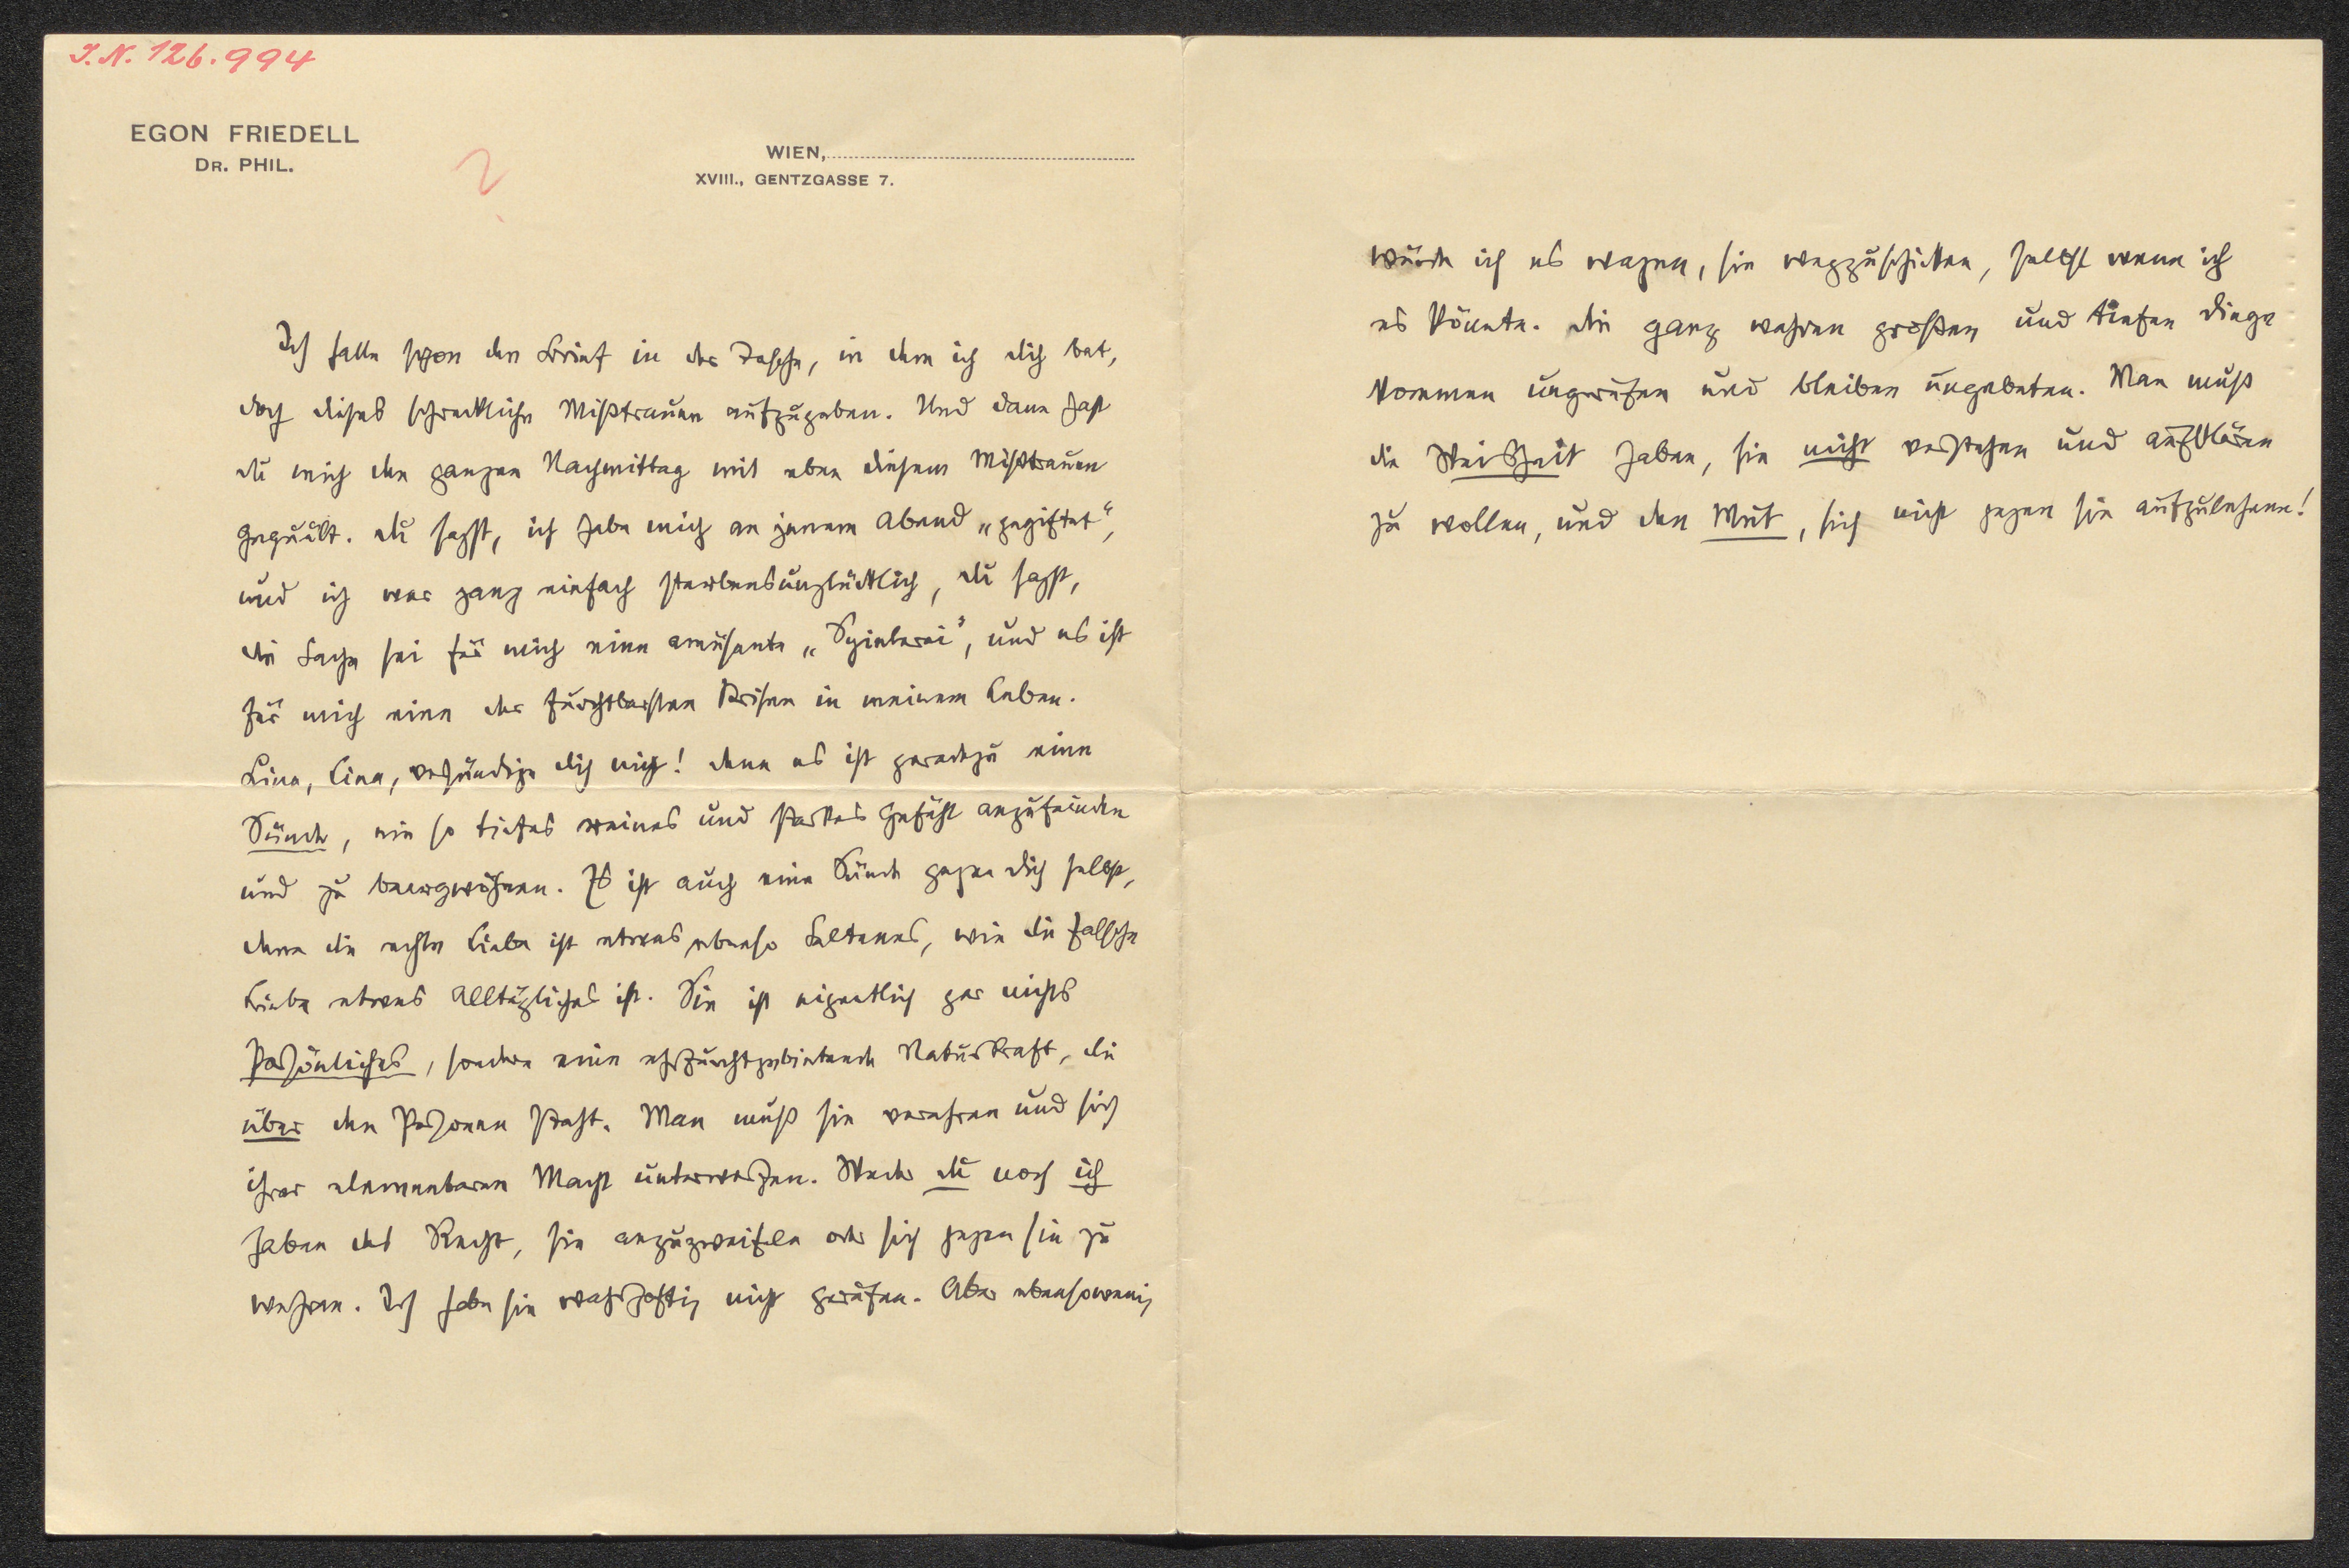 I.N. 126.994
EGON FRIEDELL
DR. PHIL.
WIEN,
XVIII., GENTZGASSE 7.
Ich hatte schon den Brief in der Tasche, in dem ich dich bat,
doch dieses schreckliche Mißtrauen aufzugeben. Und dann hast
du mich den ganzen Nachmittag mit eben diesem Mißtrauen
gequält. du sagst, ich habe mich an jenem Abend „gegiftet“,
und ich war ganz einfach sterbensunglücklich, du sagst,
die Sache sei für mich eine amüsante „Spielerei“, und es ist
für mich eine der furchtbarsten Krisen in meinem Leben.
Lina, Lina, versündige dich nicht! denn es ist geradezu eine
Sünde, ein so tiefes reines und starkes Gefühl anzufeinden
und zu beargwöhnen. Es ist auch eine Sünde gegen dich selbst,
denn die echte Liebe ist etwas ebenso Seltenes, wie die falsche
Liebe etwas Alltägliches ist. Sie ist eigentlich gar nichts
Persönliches, sondern eine ehrfurchtgebietende Naturkraft, die
über den Personen steht. Man muß sie verehren und sich
ihrer elementaren Macht unterwerfen. Weder du noch ich
haben das Recht, sie anzuzweifeln oder sich gegen sie zu
wehren. Ich habe sie wahrhaftig nicht gerufen. Aber ebensowenig
würde ich es wagen, sie wegzuschicken, selbst wenn ich
es könnte. die ganz wahren großen und tiefen Dinge
kommen ungerufen und bleiben ungebeten. Man muß
die Weisheit haben, sie nicht verstehen und aufklären
zu wollen, und den Mut, sich nicht gegen sie aufzulehnen!